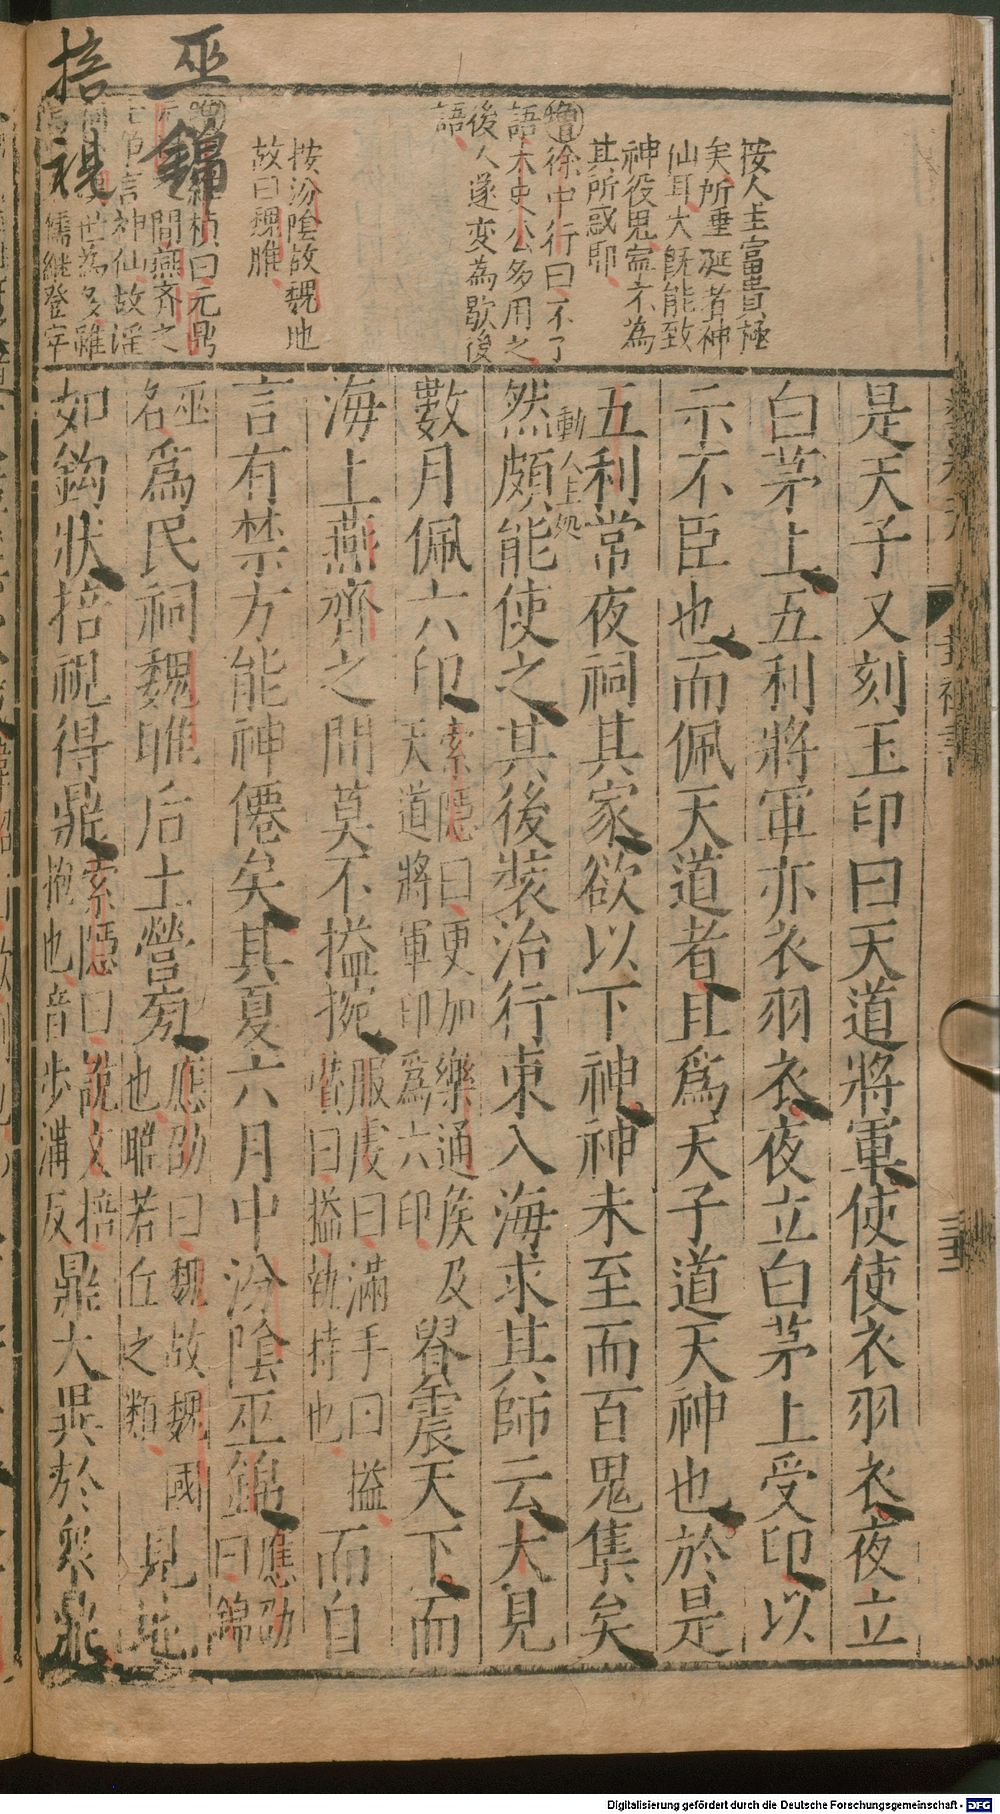 巫錦
掊視
按人主富貴極
矣所垂涎者神
仙耳大既能致
神役鬼寧不為
其所惑耶
增徐中行曰不了
語太史公多用之
後人遂变為歇後
語
按汾陰故魏地
故曰魏脽
楨曰元鼎
間燕齊之
言神仙故淫
世為多雜
儒継登牢
是天子又刻玉印曰天道將軍使使衣羽衣夜立
白茅上五利將軍亦衣羽衣夜立白茅上受印以
示不臣也而佩天道者且爲天子道天神也於是
五利常夜祠其家欲以下神神未至而百鬼集矣
動人主処
然頗能使之其後裝治行東入海求其師云大見
數月佩六印索隱曰更加樂通侯及天道將軍印爲六印䝿震天下而
海上燕齊之間莫不搤捥服虔曰滿手曰搤瓚曰搤執持也而自
言有禁方能神僊矣其夏六月中汾陰巫錦應劭曰錦
巫名爲民祠魏脽后土營旁應劭曰魏故魏國也脽若丘之類見地
如鈎狀掊視得鼎索隱曰說文掊抱也音步溝反鼎大異於衆鼎
封禪書
Digitalisierung gefördert durch die Deutsche Forschungsgemeinschaft - DFG